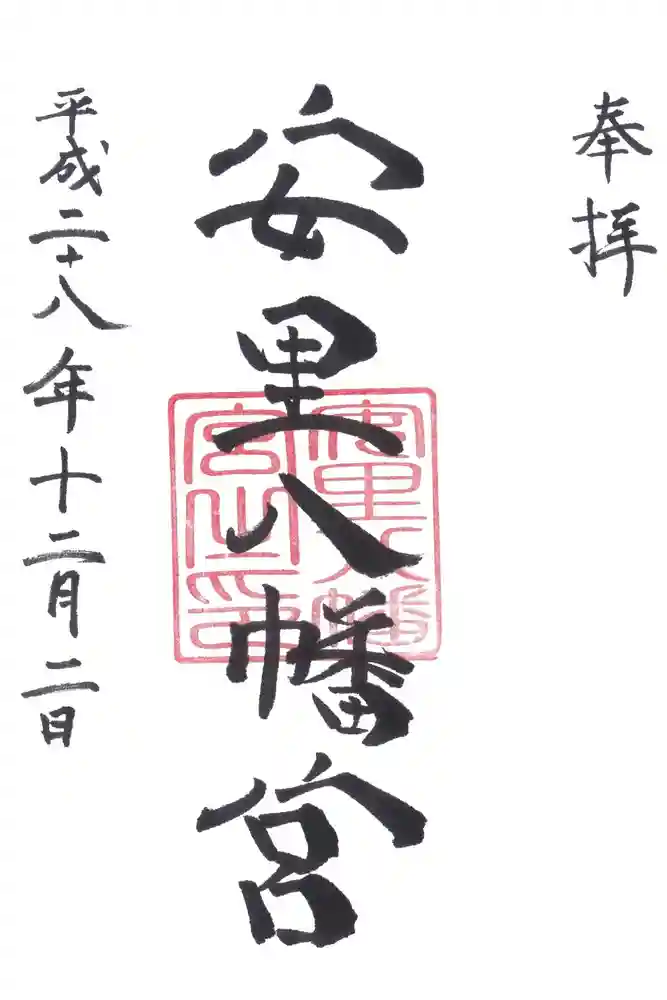 奉拝
安里八幡宮
安里八幡
宮之印
平成二十八年十二月二日